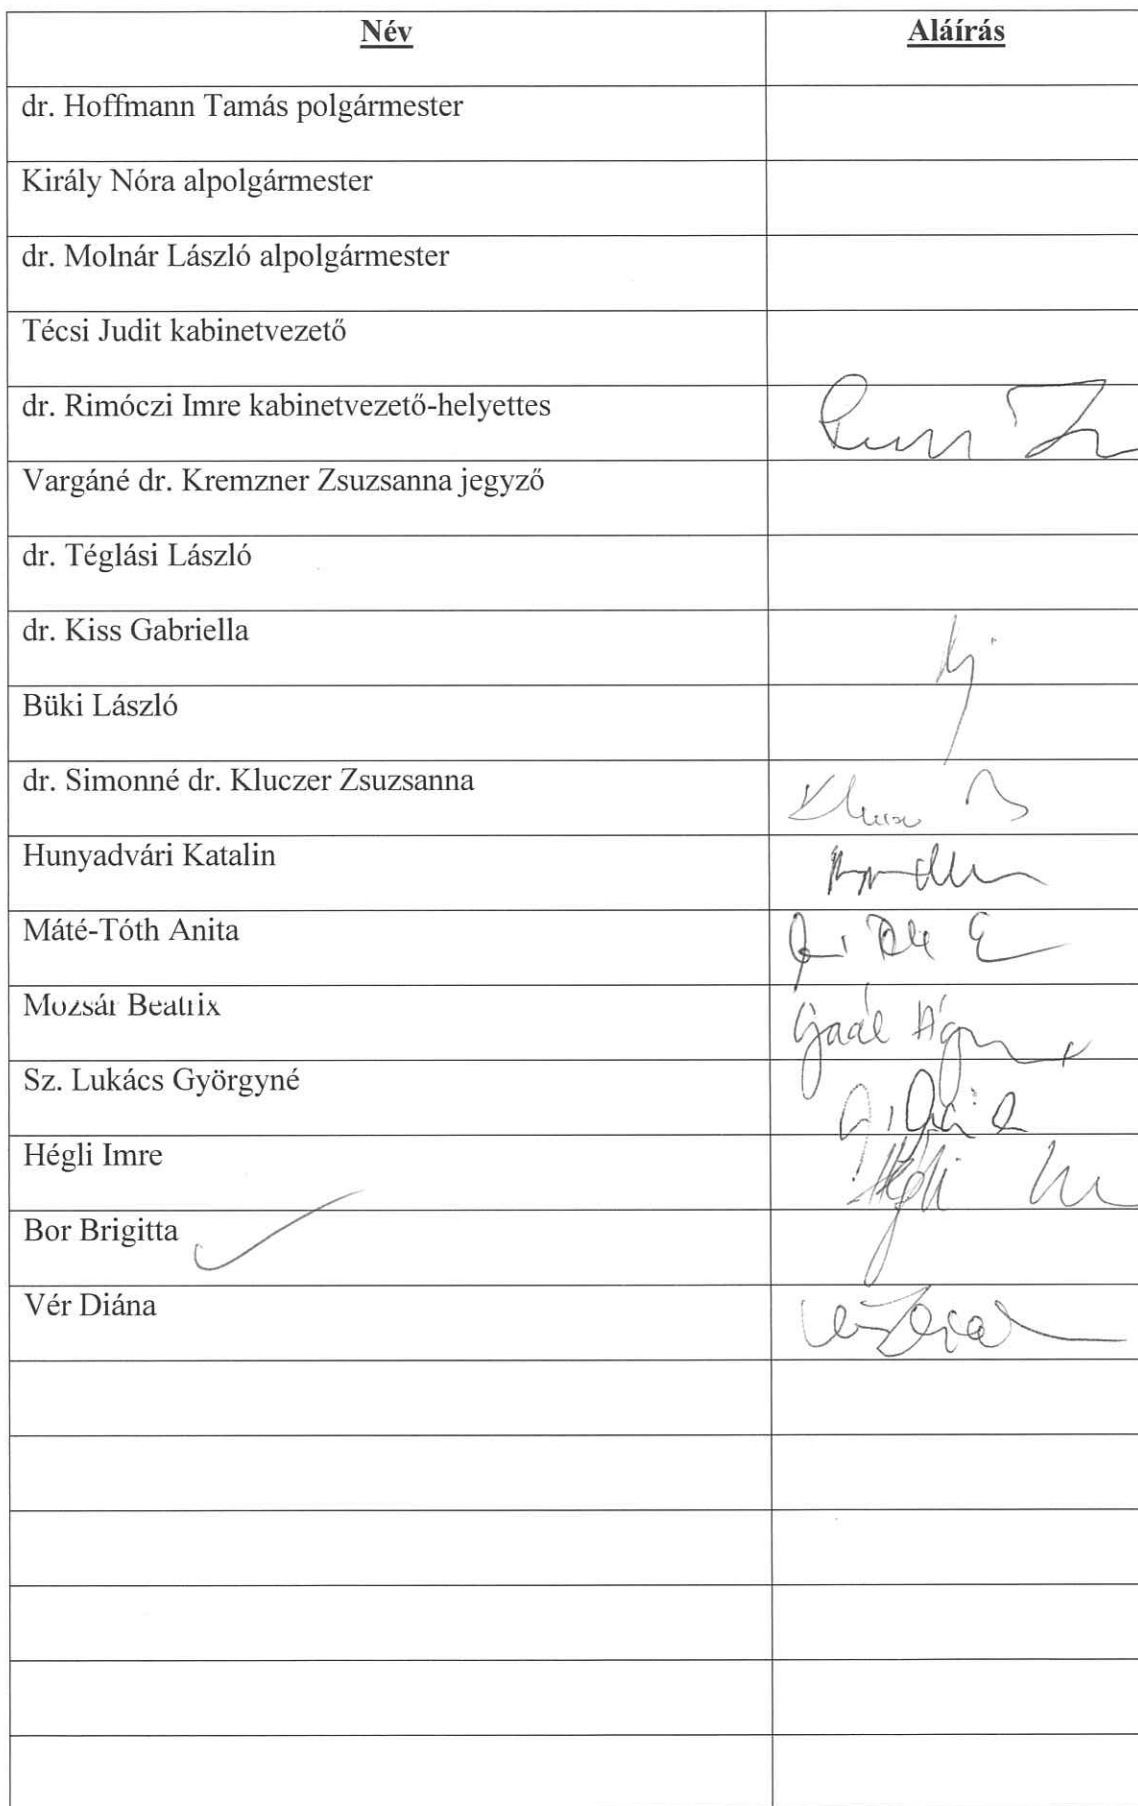 Név Aláírás
dr. Hoffmann Tamás polgármester
Király Nóra alpolgármester
dr. Molnár László alpolgármester
Técsi Judit kabinetvezető
dr. Rimóczi Imre kabinetvezető-helyettes
Vargáné dr. Kremzner Zsuzsanna jegyző
dr. Téglási László
dr. Kiss Gabriella
Büki László
dr. Simonné dr. Kluczer Zsuzsanna
Hunyadvári Katalin
Máté-Tóth Anita
Mozsár Beatrix Gaál Ágnes
Sz. Lukács Györgyné
Hégli Imre Hégli
Bor Brigitta
Vér Diána